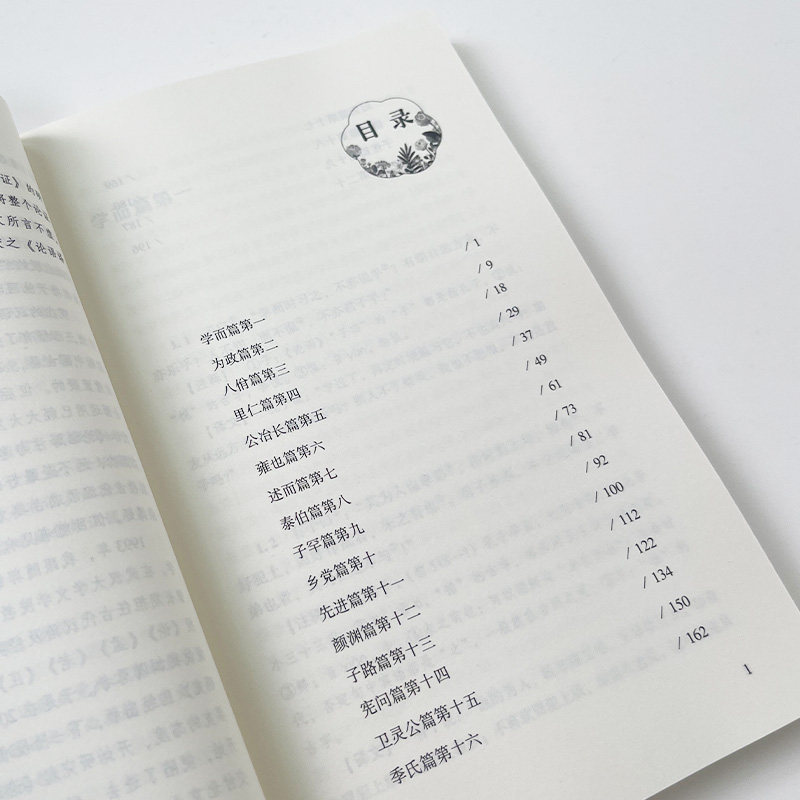 证》的
将整个论
所言不虚，
之《论语
目录
学而篇第一 / 1
为政篇第二 / 9
八佾篇第三 / 18
里仁篇第四 / 29
公冶长篇第五 / 37
雍也篇第六 / 49
述而篇第七 / 61
泰伯篇第八 / 73
子罕篇第九 / 81
乡党篇第十 / 92
先进篇第十一 / 100
颜渊篇第十二 / 112
子路篇第十三 / 122
宪问篇第十四 / 134
卫灵公篇第十五 / 150
季氏篇第十六 / 162
1